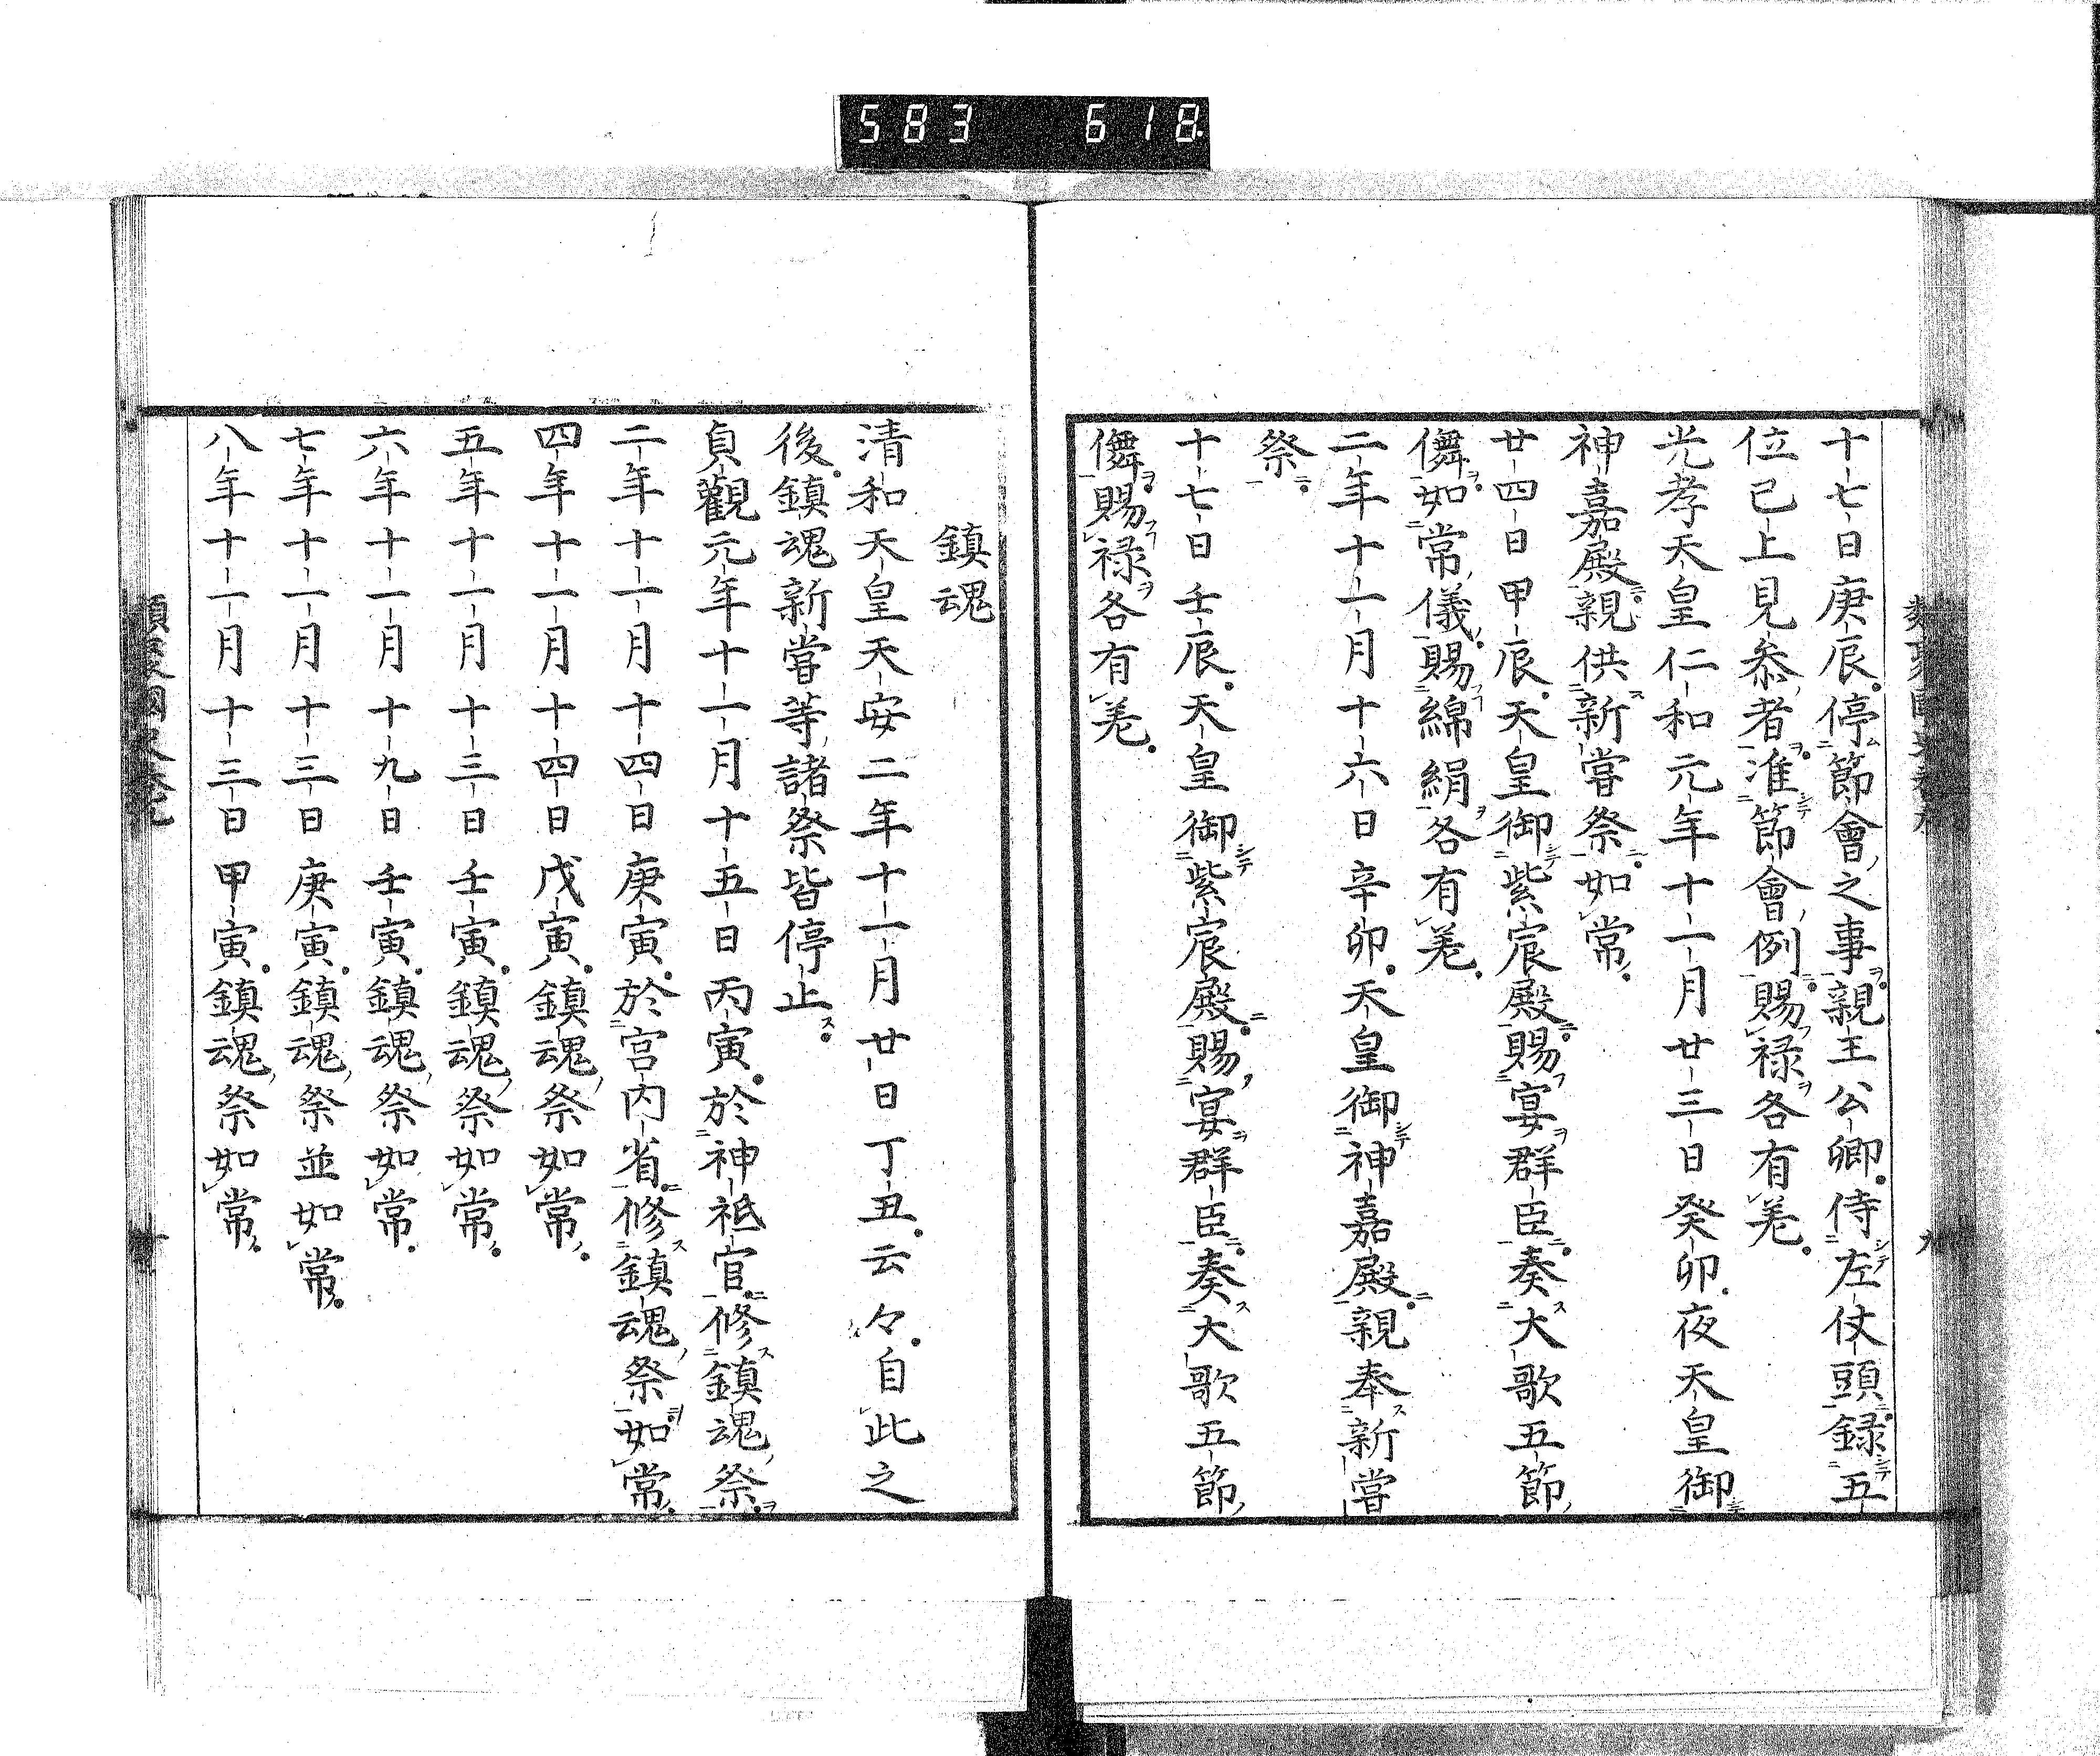 583 618
十七日庚辰停節會之事親王公卿侍左仗頭録五
位已上見叅者准節會例賜禄各有差
光孝天皇仁和元年十一月廿三日癸卯夜天皇御
神嘉殿親供新嘗祭如常
廿四日甲辰天皇御紫宸殿賜宴群臣奏大歌五節
儛如常儀賜綿絹各有差
二年十一月十六日辛卯天皇御神嘉殿親奉新嘗
祭
十七日壬辰天皇御紫宸殿賜宴群臣奏大歌五節
儛賜禄各有差
鎮魂
清和天皇天安二年十一月廿日丁丑云々自此之
後鎮魂新嘗等諸祭皆停止
貞觀元年十一月十五日丙寅於神祇官修鎮魂祭
二年十一月十四日庚寅於宮内省修鎮魂祭如常
四年十一月十四日戊寅鎮魂祭如常
五年十一月十三日壬寅鎮魂祭如常
六年十一月十九日壬寅鎮魂祭如常
七年十一月十三日庚寅鎮魂祭並如常
八年十一月十三日甲寅鎮魂祭如常